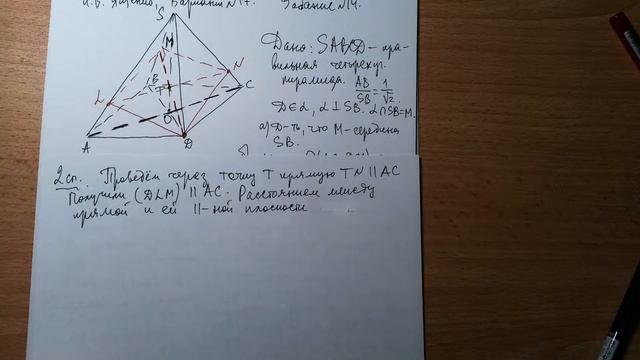 И.В. Ященко, Вариант N17. Задание N14.
S
M
N
L
B
T
C
O
A
D
Дано: SABCD – пра-
вильная четырехуг.
пирамида. AB/SB = 1/√2.
D∈α, α⊥SB. α∩SB=M.
а) Д-ть, что M-середина
SB.
2 сп. Проведём через точку T прямую TN ∥ AC
Получили (DLM) ∥ AC. Расстоянием между
прямой и ей ∥-ной плоскости